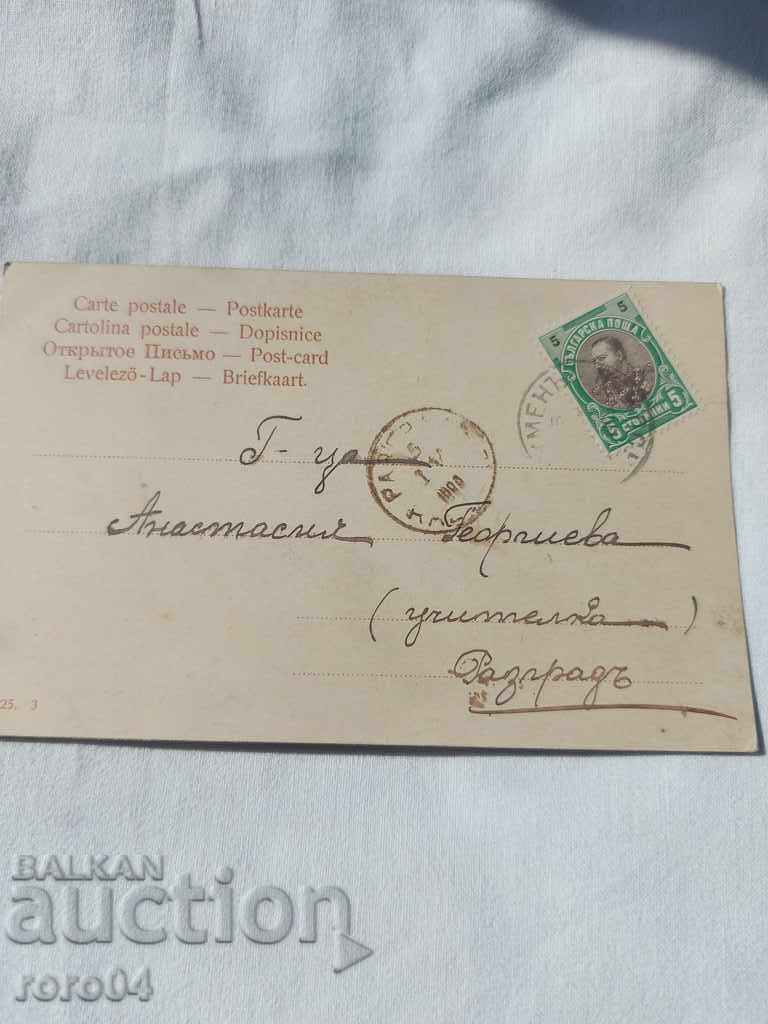 Carte postale — Postkarte
Cartolina postale — Dopisnice
Открытое Письмо — Post-card
Levelező-Lap — Briefkaart.
5 5
БЪЛГАРСКА ПОЩА
5 СТОТИНКИ 5
МЕНЪ
Г-ца
Анастасия Георгиева
(учителка)
Разградъ
25, 3
BALKAN
auction
roro04